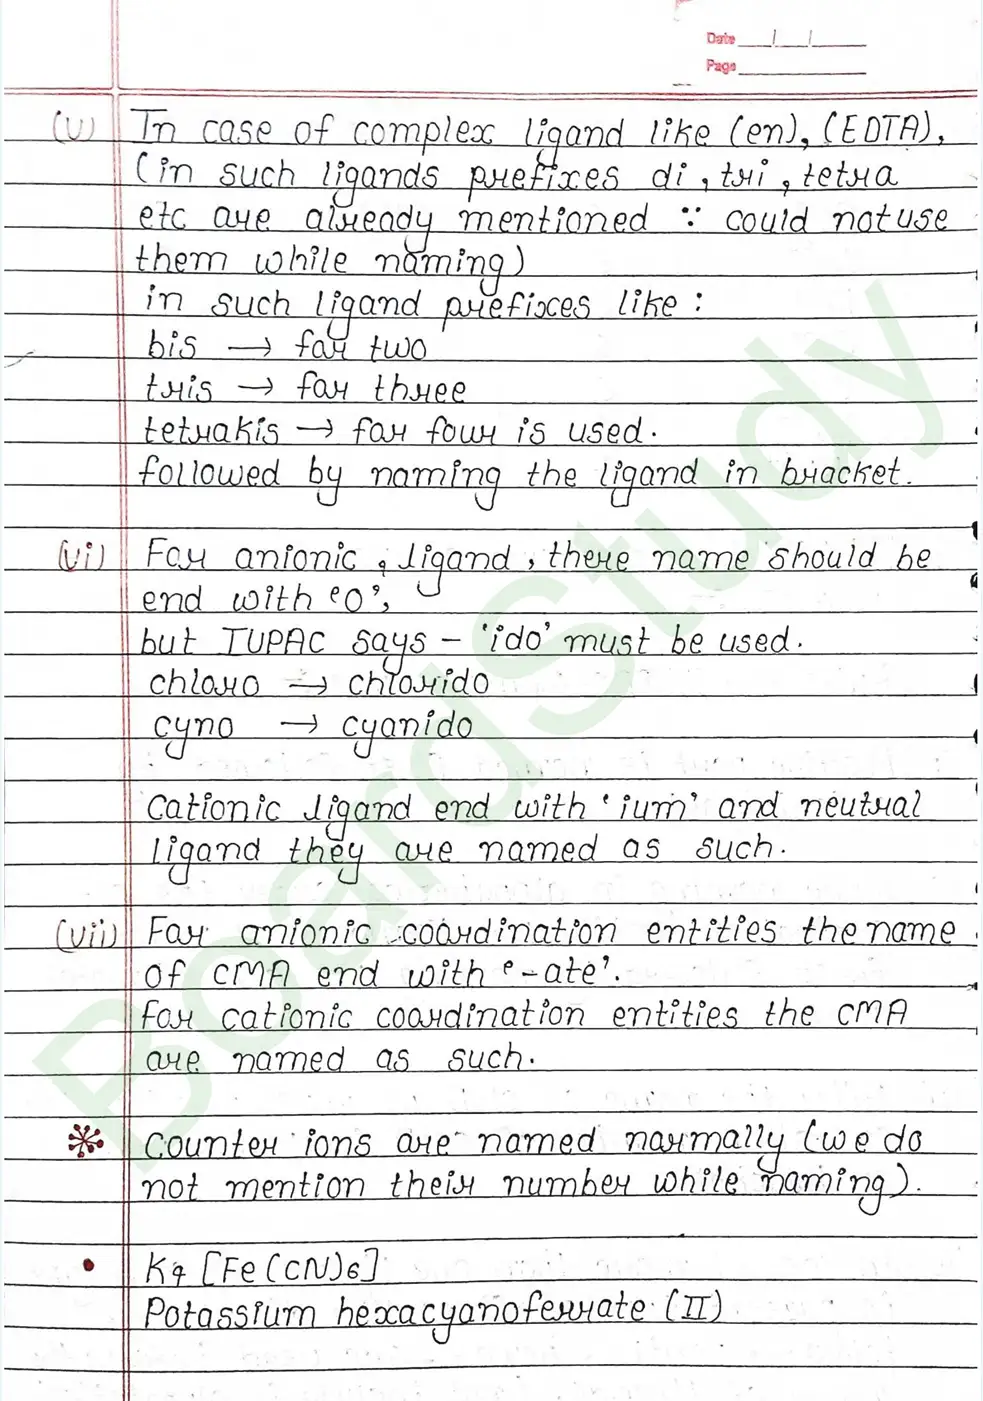 Date __/__/__
Page
(v) In case of complex ligand like (en), (EDTA),
(in such ligands prefixes di, tri, tetra
etc are already mentioned ∵ could not use
them while naming)
in such ligand prefixes like :
bis → for two
tris → for three
tetrakis → for four is used.
followed by naming the ligand in bracket.
(vi) For anionic, ligand, there name should be
end with 'o',
but IUPAC says - 'ido' must be used.
chloro → chlorido
cyno → cyanido
Cationic ligand end with 'ium' and neutral
ligand they are named as such.
(vii) For anionic coordination entities the name
of CMA end with '-ate'.
For cationic coordination entities the CMA
are named as such.
Counter ions are named normally (we do
not mention their number while naming).
• K4 [Fe(CN)6]
Potassium hexacyanoferrate (II)
BoardStudy